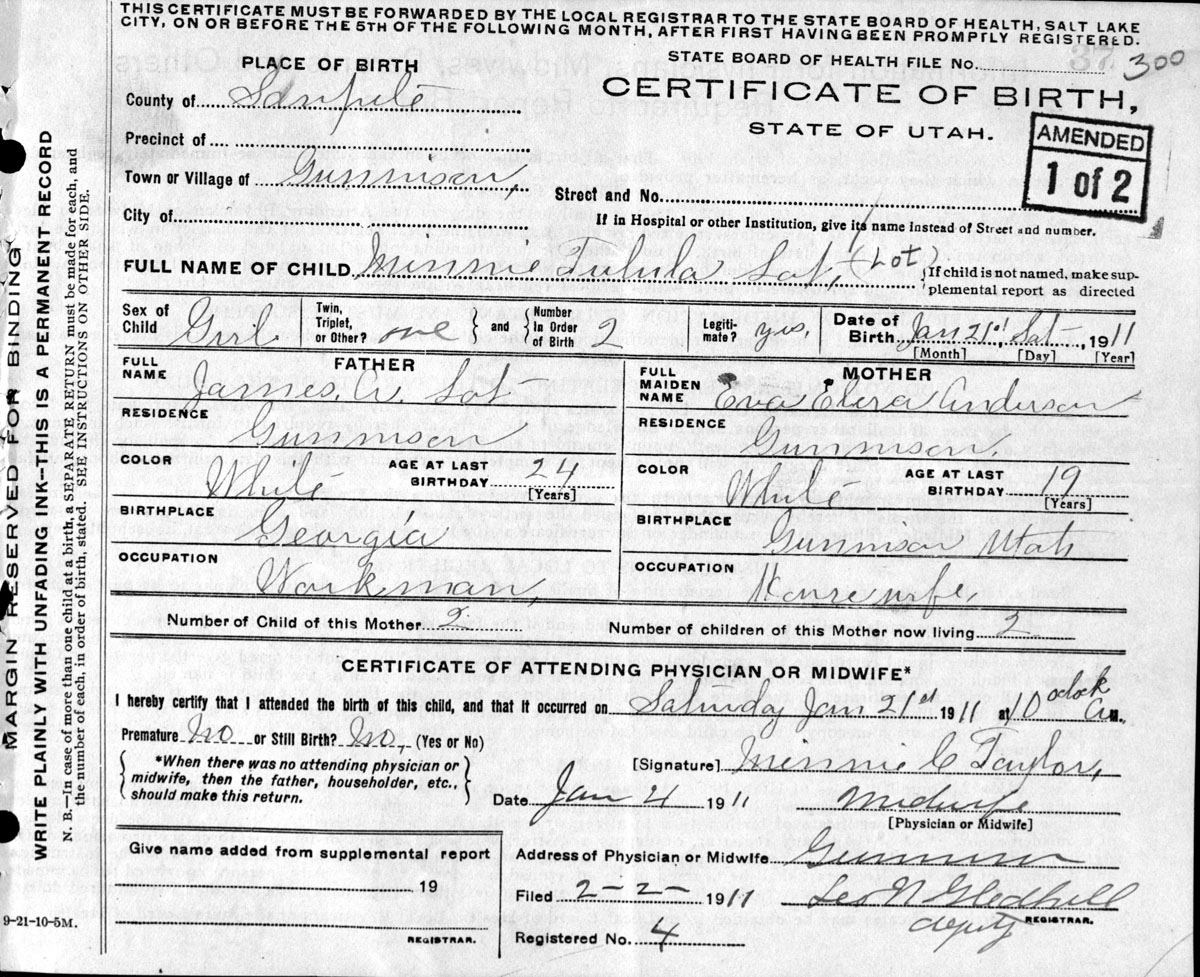 THIS CERTIFICATE MUST BE FORWARDED BY THE LOCAL REGISTRAR TO THE STATE BOARD OF HEALTH, SALT LAKE
CITY, ON OR BEFORE THE 5TH OF THE FOLLOWING MONTH, AFTER FIRST HAVING BEEN PROMPTLY REGISTERED.
STATE BOARD OF HEALTH FILE No. 37 300
PLACE OF BIRTH
CERTIFICATE OF BIRTH,
STATE OF UTAH.
AMENDED
1 of 2
County of Sanpete
Precinct of
Town or Village of Gunnison,
Street and No.
City of
If in Hospital or other Institution, give its name instead of Street and number.
FULL NAME OF CHILD Minnie Tulula Lot, (Lot)
If child is not named, make sup-
plemental report as directed
Sex of Child Girl Twin, Triplet, or Other? one and Number In Order of Birth 2 Legiti-mate? yes, Date of Birth Jan 21st, Sat 1911
[Month] [Day] [Year]
FATHER
FULL NAME James A. Lot
RESIDENCE Gunnison
COLOR White AGE AT LAST BIRTHDAY 24
[Years]
BIRTHPLACE Georgia
OCCUPATION Workman,
MOTHER
FULL MAIDEN NAME Eva Anderson
RESIDENCE Gunnison,
COLOR White AGE AT LAST BIRTHDAY 19
[Years]
BIRTHPLACE Gunnison Utah
OCCUPATION Housewife
Number of Child of this Mother 2 Number of children of this Mother now living 2
CERTIFICATE OF ATTENDING PHYSICIAN OR MIDWIFE*
I hereby certify that I attended the birth of this child, and that it occurred on Saturday Jan 21st 1911 at 10 oclock A M.
Premature No or Still Birth? No, (Yes or No)
*When there was no attending physician or
midwife, then the father, householder, etc.,
should make this return.
[Signature] Minnie C Taylor,
Date Jan 21 1911 Midwife
[Physician or Midwife]
Give name added from supplemental report
19
REGISTRAR.
Address of Physician or Midwife Gunnison
Filed 2-2- 1911 Leo N Gledhill
deputy REGISTRAR.
Registered No. 4
9-21-10-5M.
MARGIN RESERVED FOR BINDING
WRITE PLAINLY WITH UNFADING INK—THIS IS A PERMANENT RECORD
N. B.—In case of more than one child at a birth, a SEPARATE RETURN must be made for each, and
the number of each, in order of birth, stated. SEE INSTRUCTIONS ON OTHER SIDE.